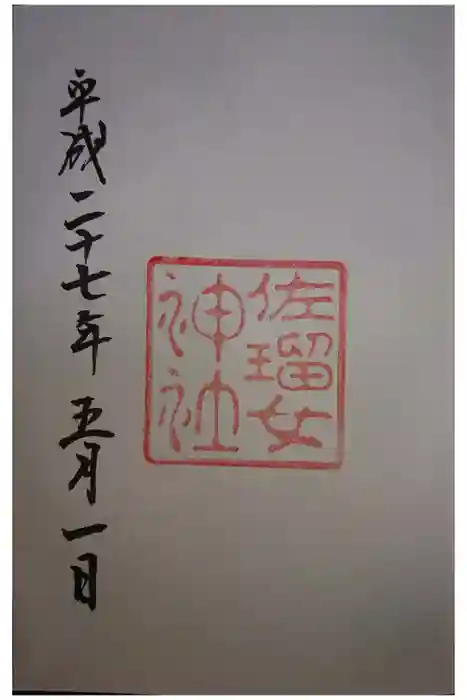 佐瑠女
神社
平成二十七年五月一日